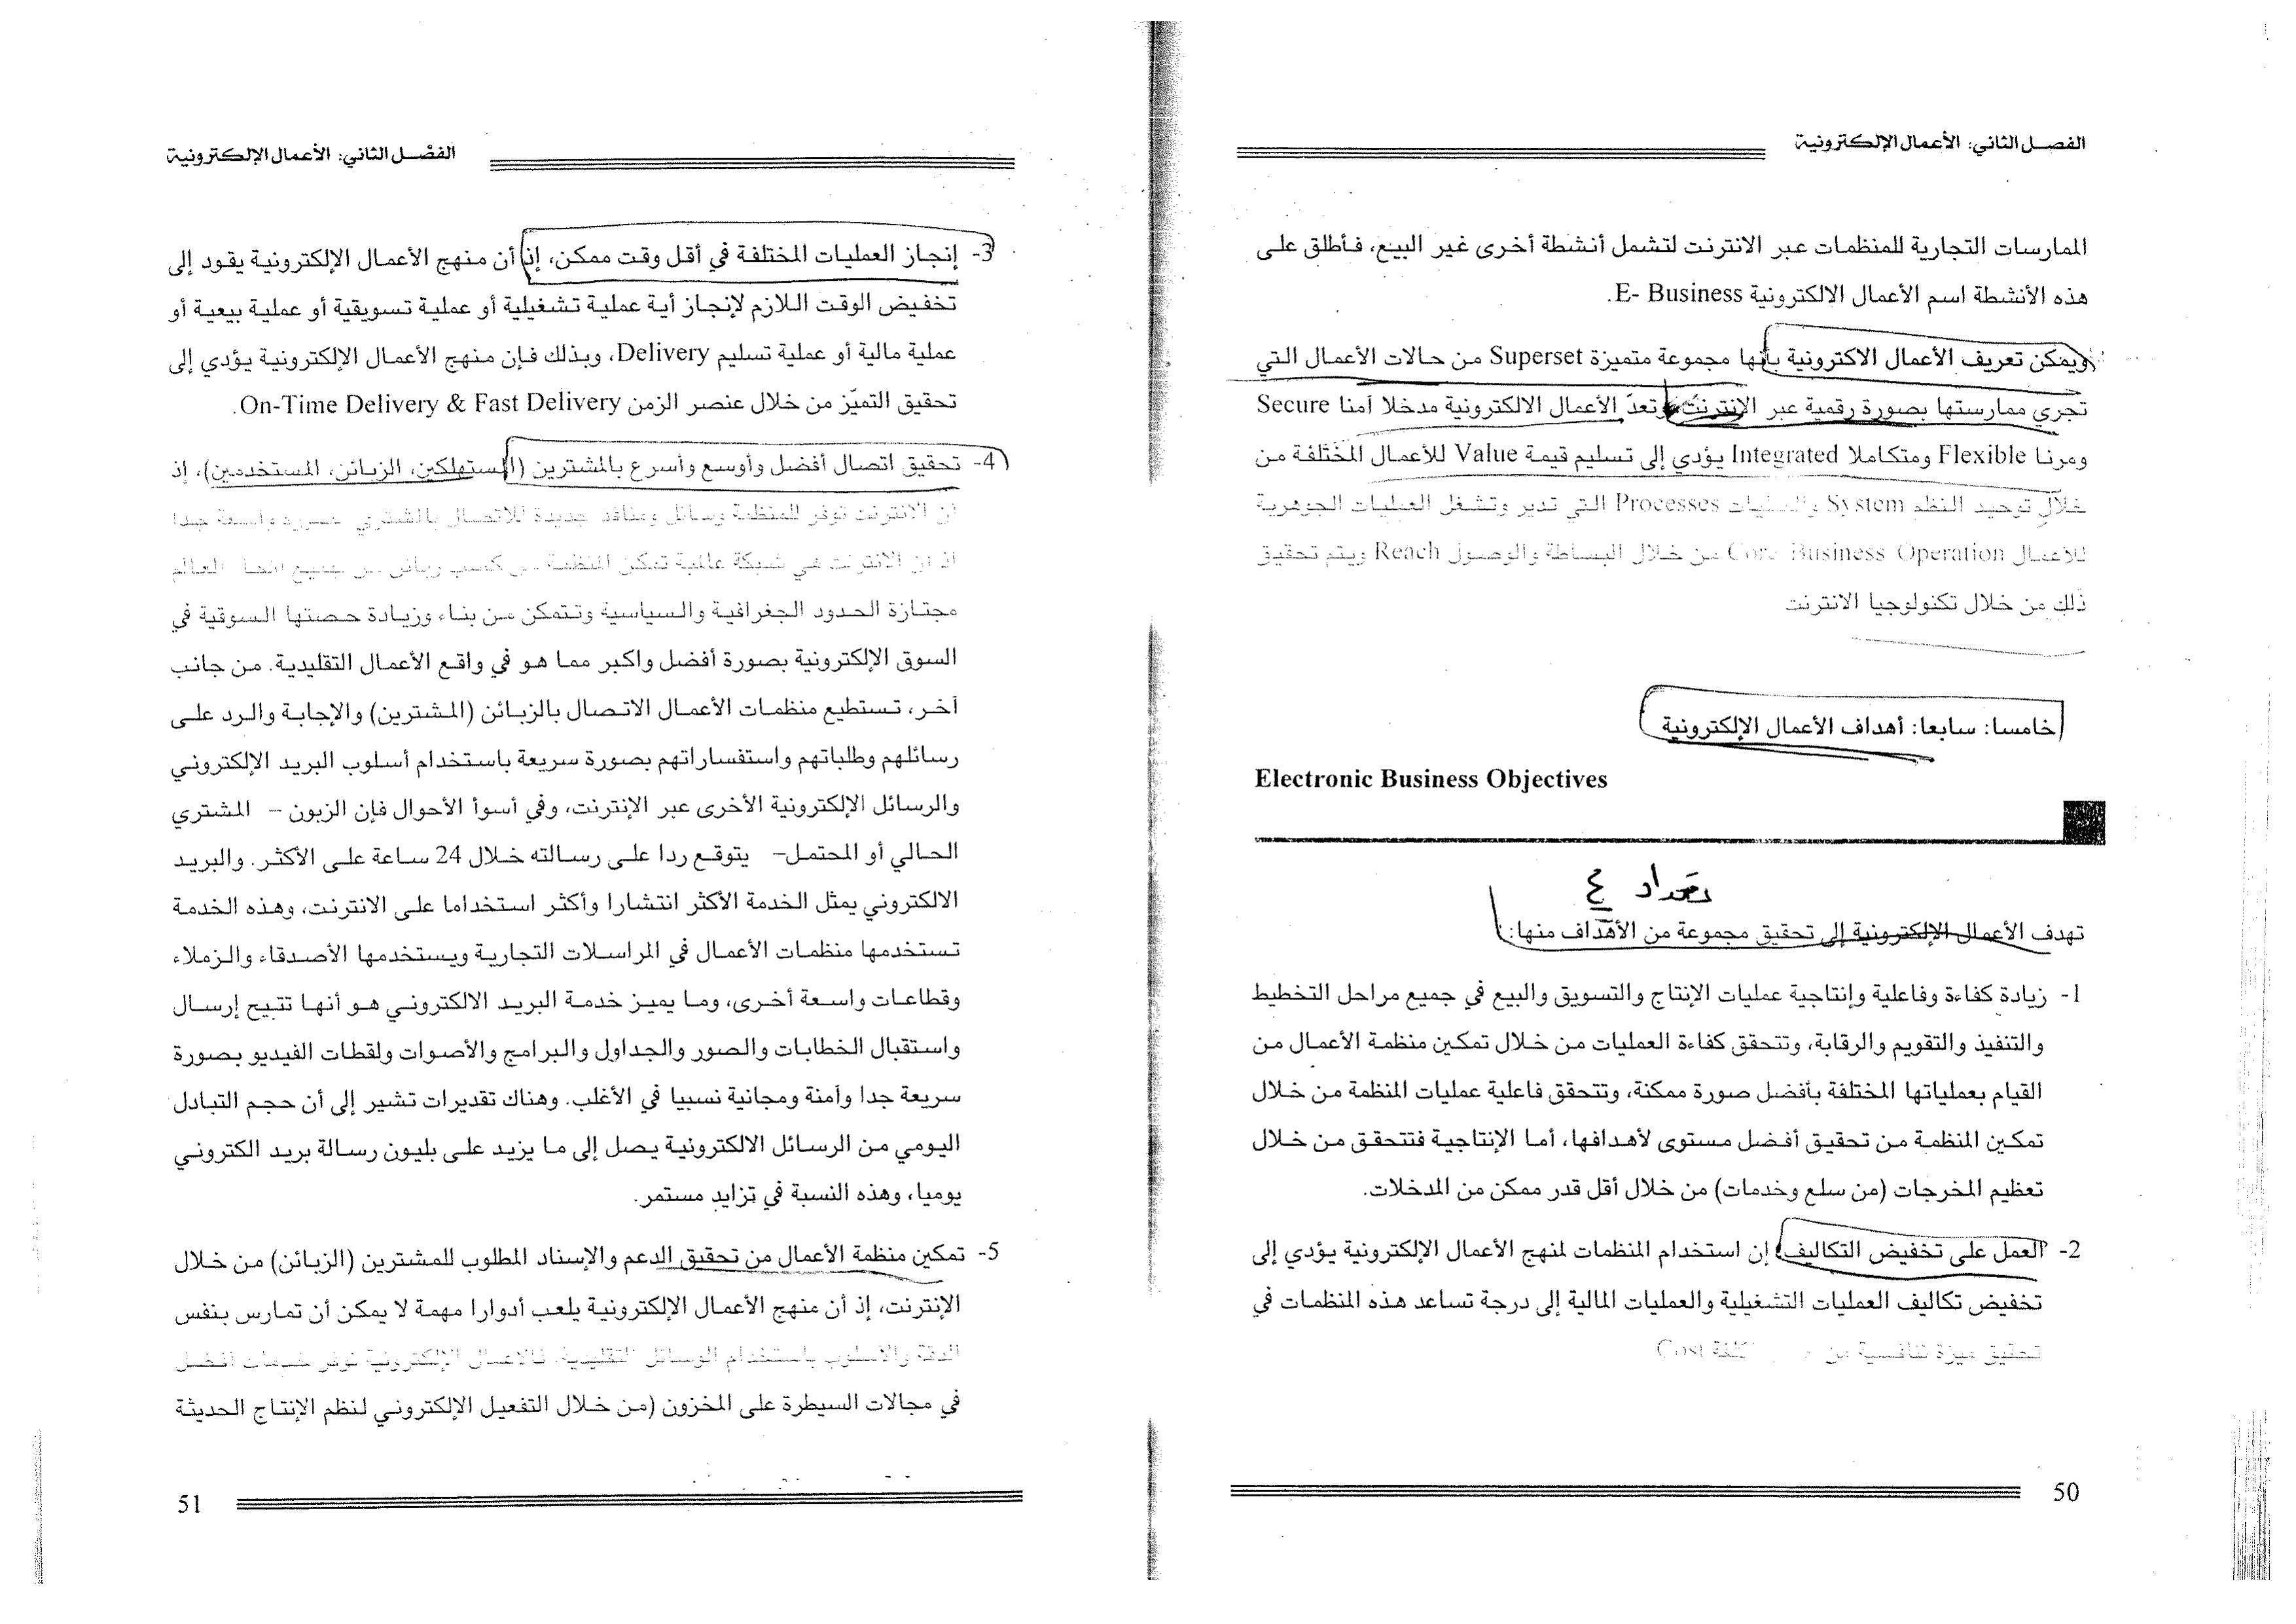 الفصل الثاني: الأعمال الإلكترونية
الممارسات التجارية للمنظمات عبر الانترنت لتشمل أنشطة أخرى غير البيع، فأطلق على
هذه الأنشطة اسم الأعمال الالكترونية E- Business.
ويمكن تعريف الأعمال الاكترونية بأنها مجموعة متميزة Superset من حالات الأعمال التي
تجري ممارستها بصورة رقمية عبر الإنترنت، وتعدّ الأعمال الالكترونية مدخلا آمنا Secure
ومرنا Flexible ومتكاملا Integrated يؤدي إلى تسليم قيمة Value للأعمال المختلفة من
خلال توحيد النظم System والعمليات Processes التي تدير وتشغل العمليات الجوهرية
للأعمال Core Business Operation من خلال البساطة والوصول Reach ويتم تحقيق
ذلك من خلال تكنولوجيا الانترنت
خامسا: سابعا: أهداف الأعمال الإلكترونية
Electronic Business Objectives
تعداد ٤
تهدف الأعمال الإلكترونية إلى تحقيق مجموعة من الأهداف منها:
1- زيادة كفاءة وفاعلية وإنتاجية عمليات الإنتاج والتسويق والبيع في جميع مراحل التخطيط
والتنفيذ والتقويم والرقابة، وتتحقق كفاءة العمليات من خلال تمكين منظمة الأعمال من
القيام بعملياتها المختلفة بأفضل صورة ممكنة، وتتحقق فاعلية عمليات المنظمة من خلال
تمكين المنظمة من تحقيق أفضل مستوى لأهدافها، أما الإنتاجية فتتحقق من خلال
تعظيم المخرجات (من سلع وخدمات) من خلال أقل قدر ممكن من المدخلات.
2- العمل على تخفيض التكاليف، إن استخدام المنظمات لمنهج الأعمال الإلكترونية يؤدي إلى
تخفيض تكاليف العمليات التشغيلية والعمليات المالية إلى درجة تساعد هذه المنظمات في
تحقيق ميزة تنافسية من كلفة Cost
50
الفصل الثاني: الأعمال الإلكترونية
3- إنجاز العمليات المختلفة في أقل وقت ممكن، إذ أن منهج الأعمال الإلكترونية يقود إلى
تخفيض الوقت اللازم لإنجاز أية عملية تشغيلية أو عملية تسويقية أو عملية بيعية أو
عملية مالية أو عملية تسليم Delivery، وبذلك فإن منهج الأعمال الإلكترونية يؤدي إلى
تحقيق التميّز من خلال عنصر الزمن On-Time Delivery & Fast Delivery.
4- تحقيق اتصال أفضل وأوسع وأسرع بالمشترين (المستهلكين، الزبائن، المستخدمين)، إذ
أن الانترنت توفر للمنظمة وسائل ومنافذ جديدة للاتصال بالمشتري بصورة واسعة جدا
اذ ان الانترنت هي شبكة عالمية تمكن المنظمة من كسب زبائن من جميع انحاء العالم
مجتازة الحدود الجغرافية والسياسية وتتمكن من بناء وزيادة حصتها السوقية في
السوق الإلكترونية بصورة أفضل واكبر مما هو في واقع الأعمال التقليدية. من جانب
آخر، تستطيع منظمات الأعمال الاتصال بالزبائن (المشترين) والإجابة والرد على
رسائلهم وطلباتهم واستفساراتهم بصورة سريعة باستخدام أسلوب البريد الإلكتروني
والرسائل الإلكترونية الأخرى عبر الإنترنت، وفي أسوأ الأحوال فإن الزبون – المشتري
الحالي أو المحتمل– يتوقع ردا على رسالته خلال 24 ساعة على الأكثر. والبريد
الالكتروني يمثل الخدمة الأكثر انتشارا وأكثر استخداما على الانترنت، وهذه الخدمة
تستخدمها منظمات الأعمال في المراسلات التجارية ويستخدمها الأصدقاء والزملاء
وقطاعات واسعة أخرى، وما يميز خدمة البريد الالكتروني هو أنها تتيح إرسال
واستقبال الخطابات والصور والجداول والبرامج والأصوات ولقطات الفيديو بصورة
سريعة جدا وآمنة ومجانية نسبيا في الأغلب. وهناك تقديرات تشير إلى أن حجم التبادل
اليومي من الرسائل الالكترونية يصل إلى ما يزيد على بليون رسالة بريد الكتروني
يوميا، وهذه النسبة في تزايد مستمر.
5- تمكين منظمة الأعمال من تحقيق الدعم والإسناد المطلوب للمشترين (الزبائن) من خلال
الإنترنت، إذ أن منهج الأعمال الإلكترونية يلعب أدوارا مهمة لا يمكن أن تمارس بنفس
الدقة والأسلوب باستخدام الوسائل التقليدية. فالاعمال الإلكترونية توفر خدمات افضل
في مجالات السيطرة على المخزون (من خلال التفعيل الإلكتروني لنظم الإنتاج الحديثة
51